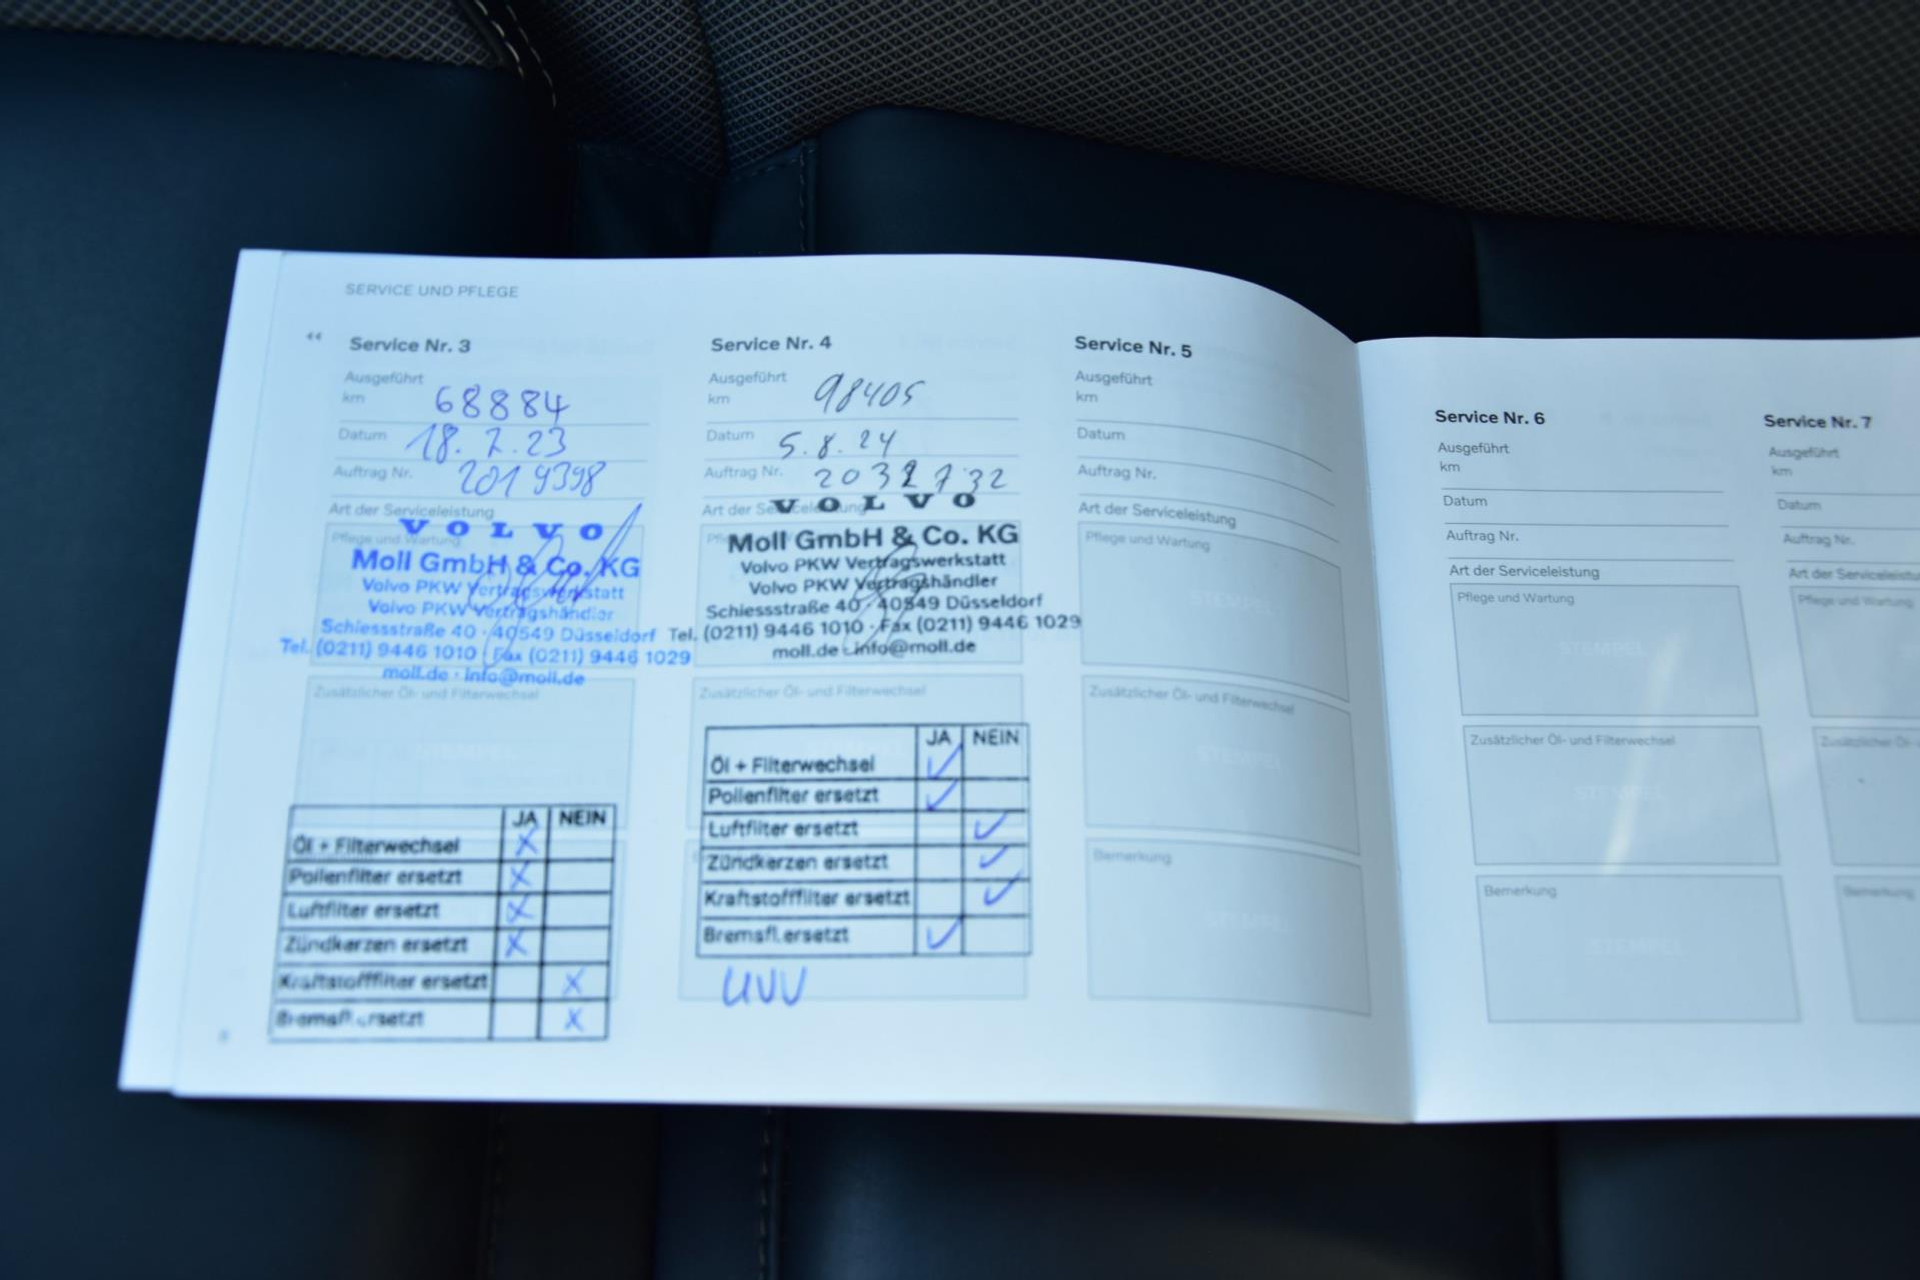 SERVICE UND PFLEGE
Service Nr. 3
Ausgeführt
km 68884
Datum 18.7.23
Auftrag Nr. 2019398
Art der Serviceleistung
Pflege und Wartung
VOLVO
Moll GmbH & Co. KG
Volvo PKW Vertragswerkstatt
Volvo PKW Vertragshändler
Schiessstraße 40 · 40549 Düsseldorf
Tel. (0211) 9446 1010 · Fax (0211) 9446 1029
moll.de · info@moll.de
Zusätzlicher Öl- und Filterwechsel
STEMPEL
JA NEIN
Öl + Filterwechsel X
Pollenfilter ersetzt X
Luftfilter ersetzt X
Zündkerzen ersetzt X
Kraftstofffilter ersetzt X
Bremsfl.ersetzt X
Service Nr. 4
Ausgeführt
km 98405
Datum 5.8.24
Auftrag Nr. 2032732
Art der Serviceleistung
VOLVO
Moll GmbH & Co. KG
Volvo PKW Vertragswerkstatt
Volvo PKW Vertragshändler
Schiessstraße 40 · 40549 Düsseldorf
Tel. (0211) 9446 1010 · Fax (0211) 9446 1029
moll.de · info@moll.de
Zusätzlicher Öl- und Filterwechsel
JA NEIN
Öl + Filterwechsel ✓
Pollenfilter ersetzt ✓
Luftfilter ersetzt ✓
Zündkerzen ersetzt ✓
Kraftstofffilter ersetzt ✓
Bremsfl.ersetzt ✓
UVV
Service Nr. 5
Ausgeführt
km
Datum
Auftrag Nr.
Art der Serviceleistung
Pflege und Wartung
STEMPEL
Zusätzlicher Öl- und Filterwechsel
STEMPEL
Bemerkung
STEMPEL
Service Nr. 6
Ausgeführt
km
Datum
Auftrag Nr.
Art der Serviceleistung
Pflege und Wartung
STEMPEL
Zusätzlicher Öl- und Filterwechsel
STEMPEL
Bemerkung
STEMPEL
Service Nr. 7
Ausgeführt
km
Datum
Auftrag Nr.
Art der Serviceleistu
Pflege und Wartung
Zusätzlicher Öl-
Bemerkung